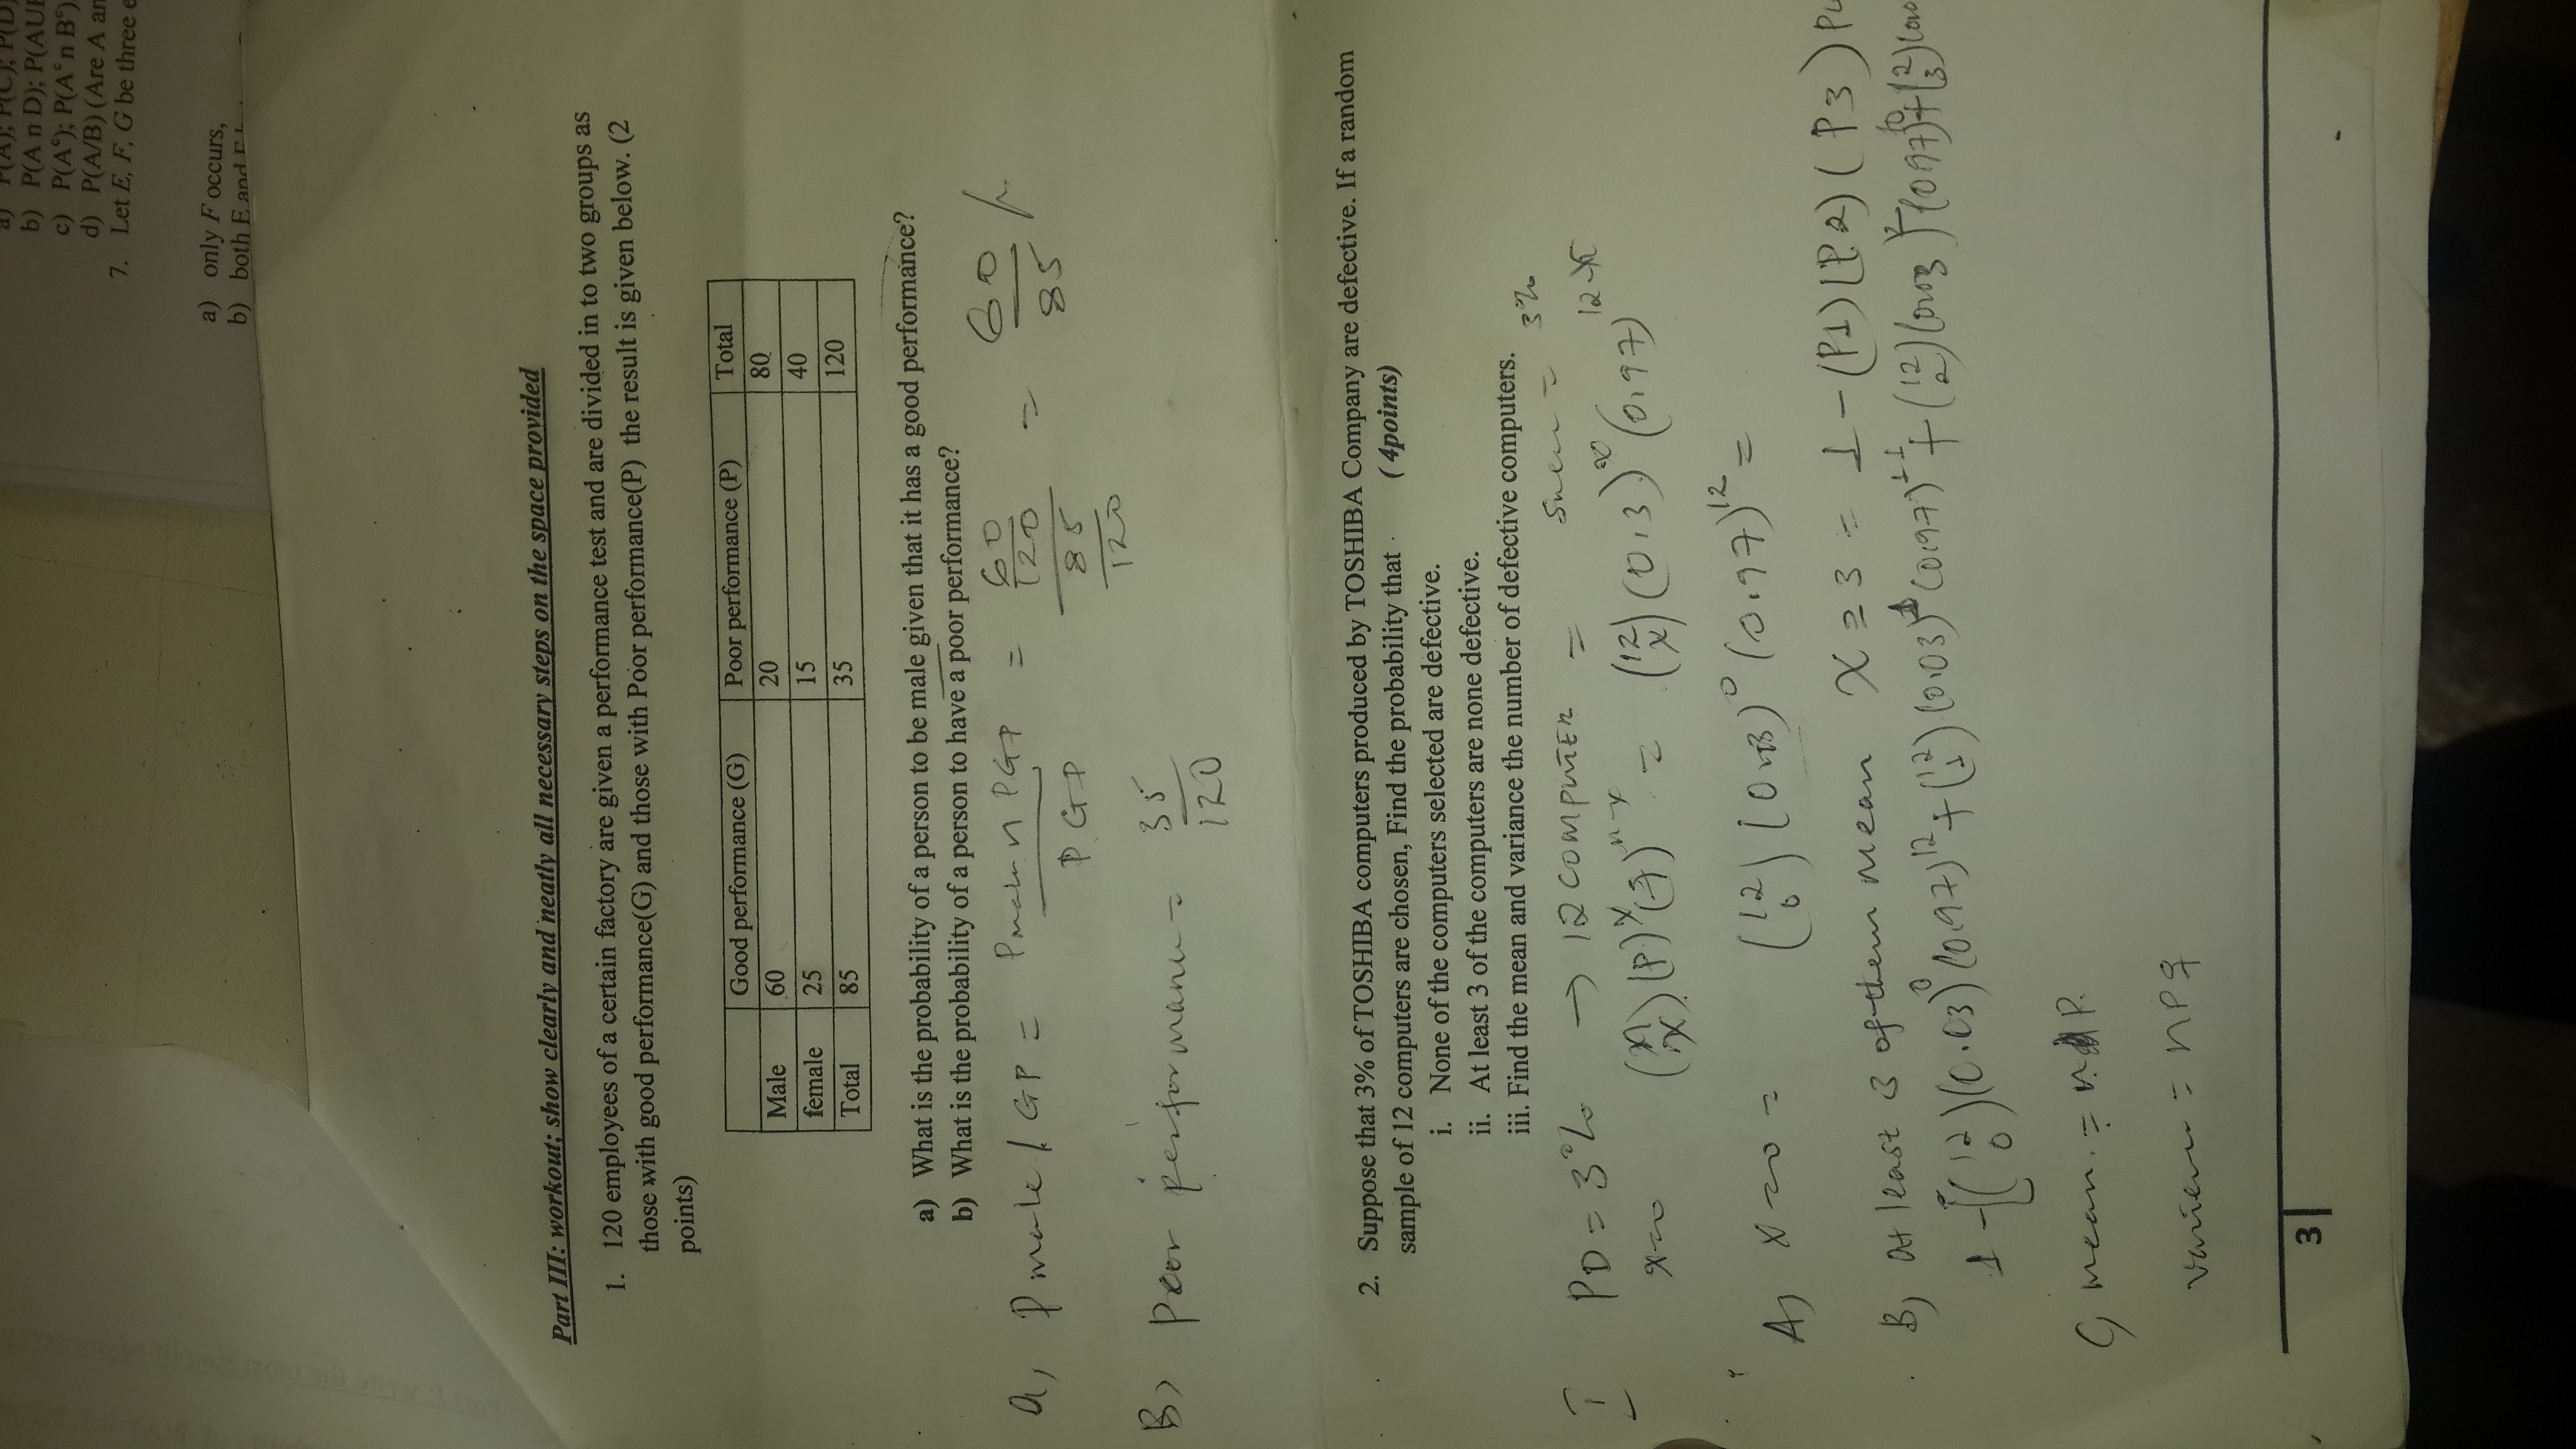 a) P(A); P(C); P(D)
b) P(A n D); P(AU
c) P(Aᶜ); P(Aᶜn Bᶜ)
d) P(A/B) (Are A an
7. Let E, F, G be three e
a) only F occurs,
b) both E and
Part III: workout; show clearly and neatly all necessary steps on the space provided
1. 120 employees of a certain factory are given a performance test and are divided in to two groups as
those with good performance(G) and those with Poor performance(P) the result is given below. (2
points)
Good performance (G) Poor performance (P) Total
Male 60 20 80
female 25 15 40
Total 85 35 120
a) What is the probability of a person to be male given that it has a good performance?
b) What is the probability of a person to have a poor performance?
a, P male / GP = Pmale n PGP / PGP = 60/120 / 85/120 = 60/85
B) Poor performance = 35/120
2. Suppose that 3% of TOSHIBA computers produced by TOSHIBA Company are defective. If a random
sample of 12 computers are chosen, Find the probability that (4points)
i. None of the computers selected are defective.
ii. At least 3 of the computers are none defective.
iii. Find the mean and variance the number of defective computers.
I PD = 3% → 12 COMPUTER = = 3%
x=0 (n x) (p)^x (q)^n-x = (12 x) (0.3)^x (0.97)^12-x
A) x=0 = (12 0) (0.03)^0 (0.97)^12 =
B) At least 3 of them mean x ≥ 3 = 1 - (P1) (P2) (P3)
1 - [(12 0) (0.03)^0 (0.97)^12 + (12 1) (0.03)^1 (0.97)^11 + (12 2) (0.03)^2 (0.97)^10 + (12 3) (0.0
C) mean. = n P.
varience = npq
3